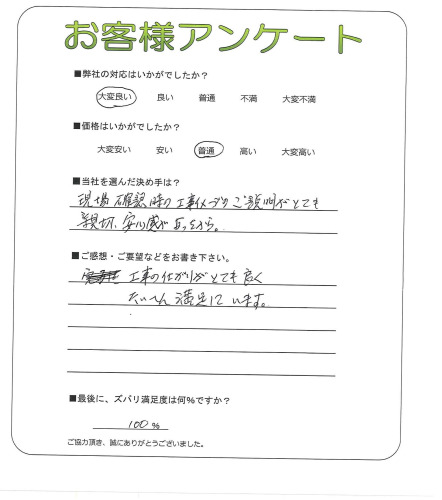 お客様アンケート
■弊社の対応はいかがでしたか?
大変良い 良い 普通 不満 大変不満
■価格はいかがでしたか?
大変安い 安い 普通 高い 大変高い
■当社を選んだ決め手は?
現場確認時の工事イメージのご説明がとても
親切、安心感があったから。
■ご感想・ご要望などをお書き下さい。
工事の仕上がりがとても良く
たいへん満足しています。
■最後に、ズバリ満足度は何%ですか?
100 %
ご協力頂き、誠にありがとうございました。